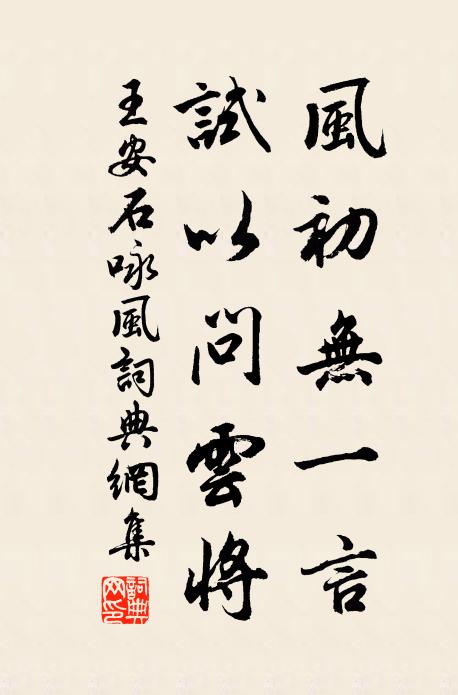 風初無一言
試以問雲將
王安石咏風詞典網集
詞典
网印